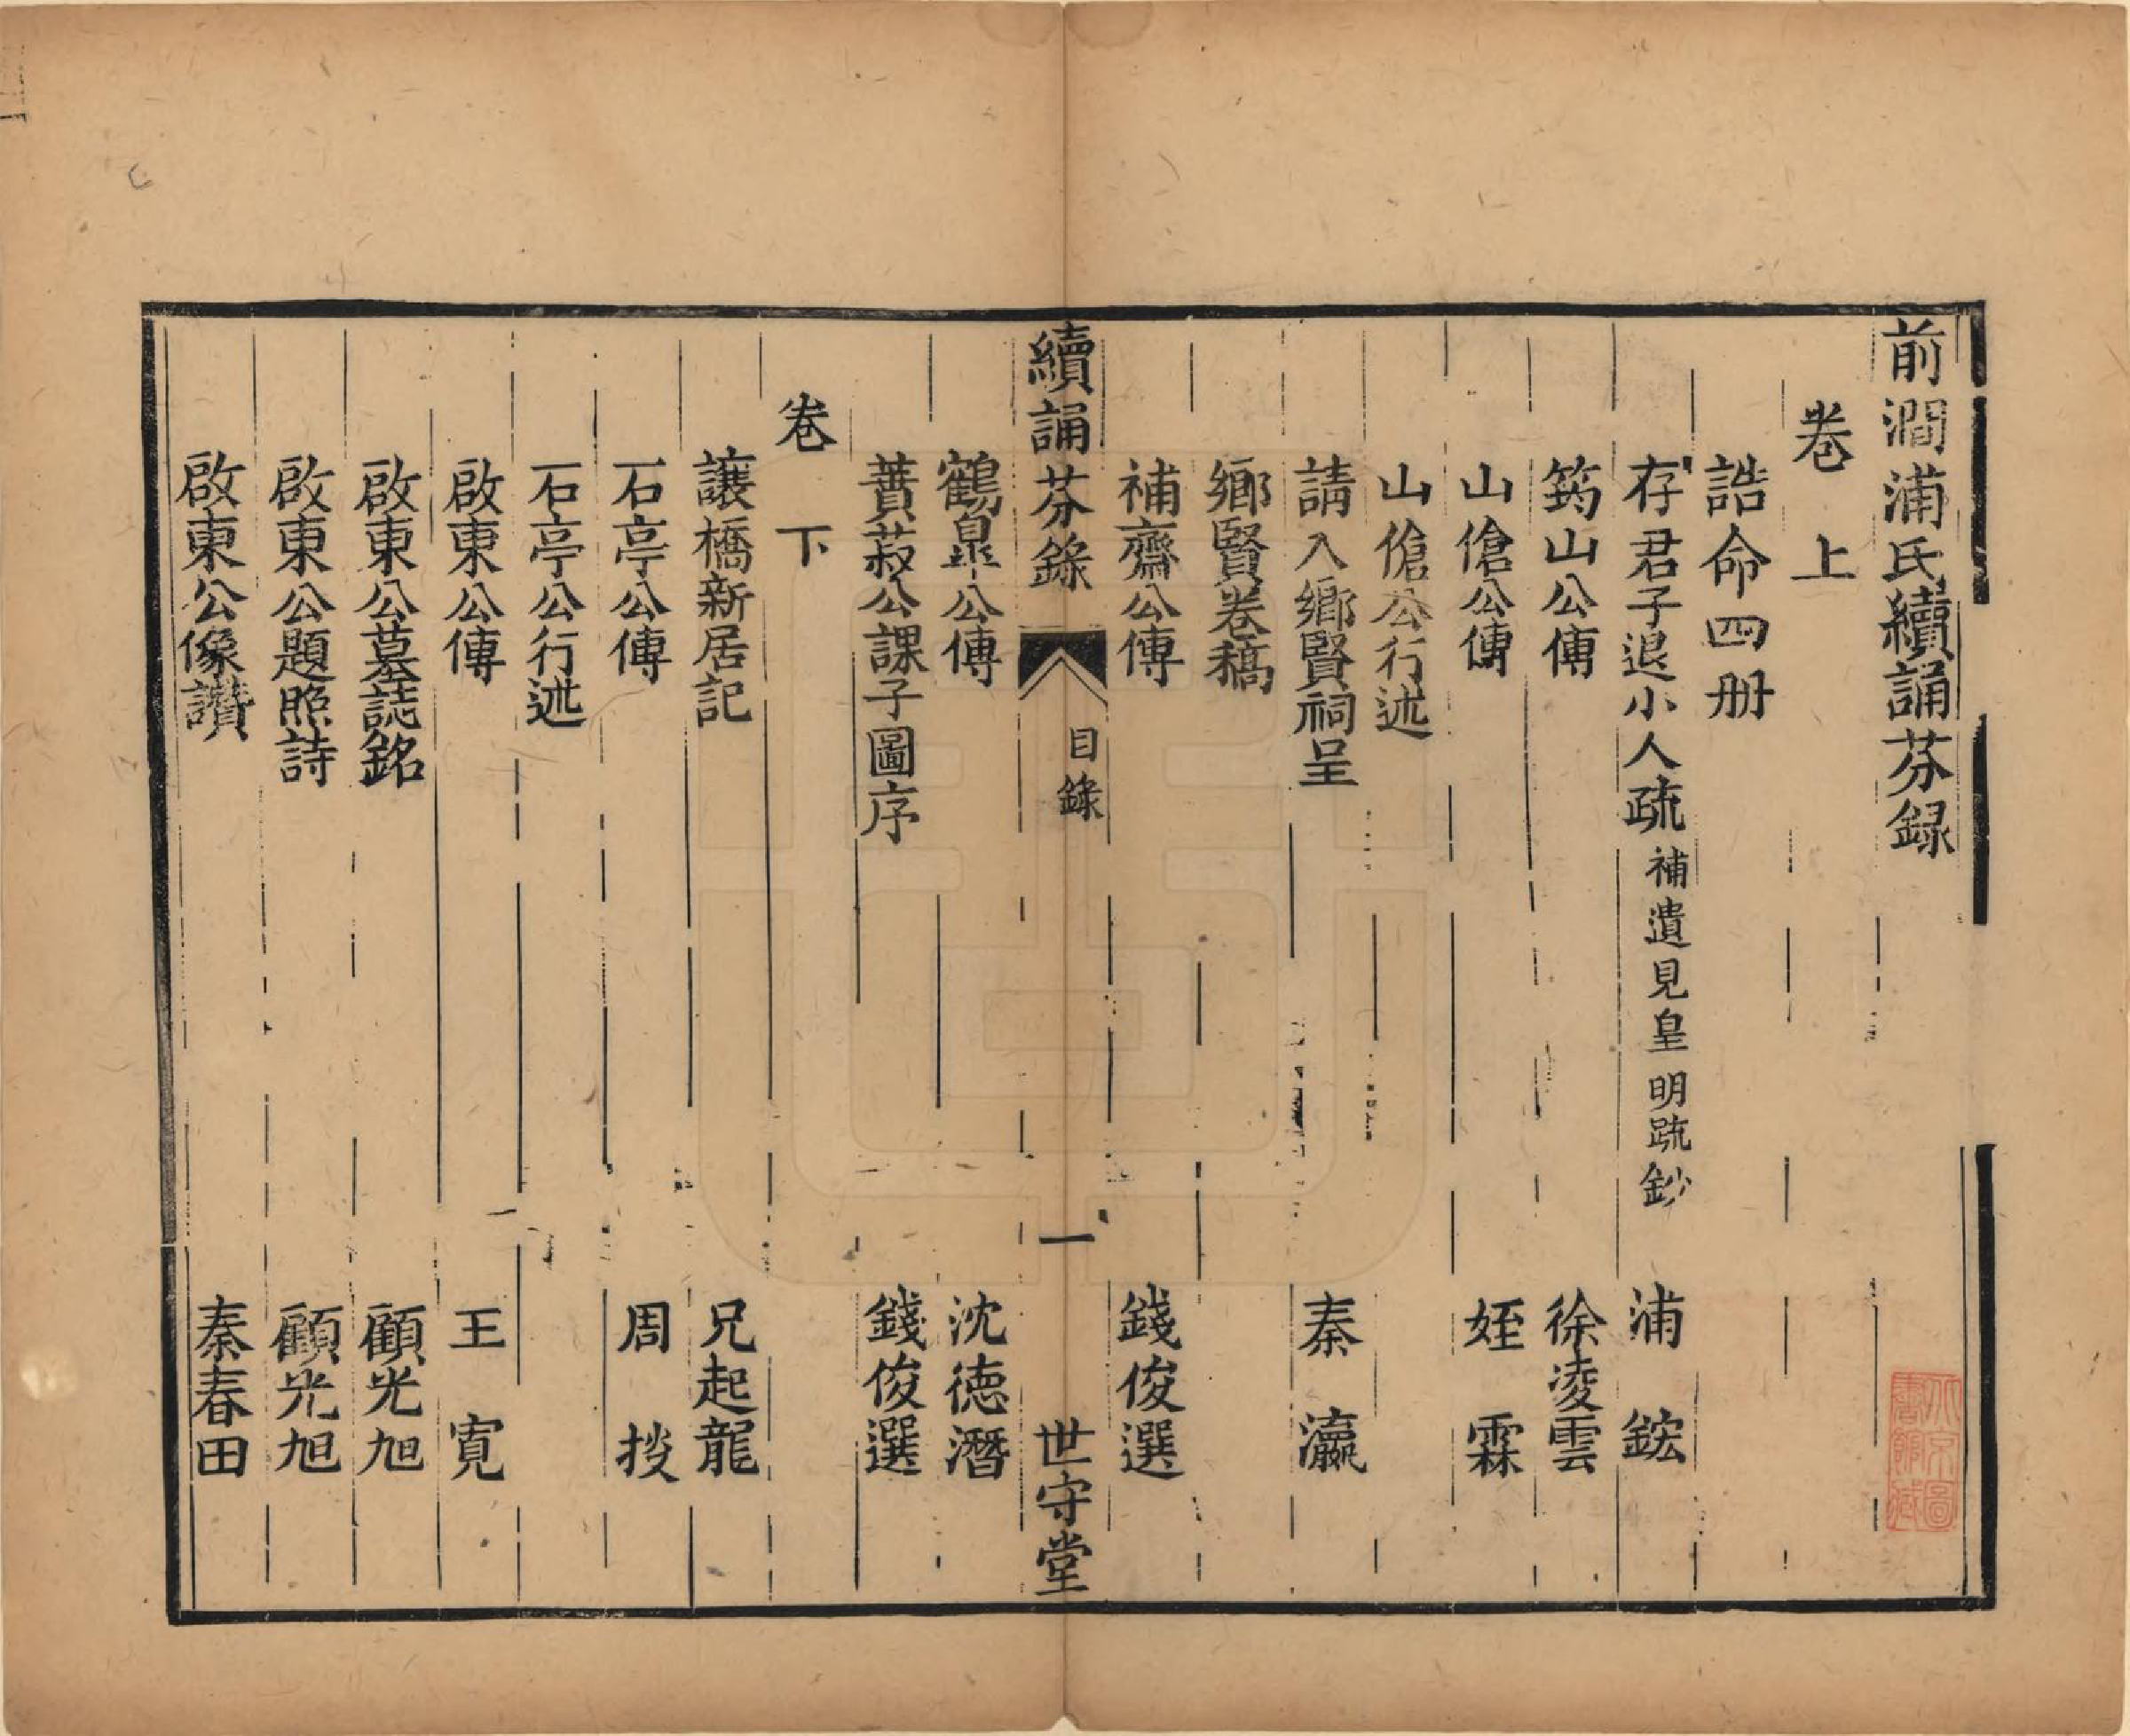 前澗浦氏續誦芬録
卷上
誥命四册
存君子退小人疏 補遺見皇明疏鈔 浦鋐
筠山公傳 徐凌雲
山傖公傳 姪霖
山傖公行述
請入鄉賢祠呈 秦瀛
鄉賢卷稿
補齋公傳 錢俊選
續誦芬錄 目錄 一 世守堂
鶴臯公傳 沈德潛
蕡菽公課子圖序 錢俊選
卷下
讓橋新居記 兄起龍
石亭公傳 周拔
石亭公行述
啟東公傳 王寛
啟東公墓誌銘 顧光旭
啟東公題照詩 顧光旭
啟東公像讃 秦春田
北京圖書館藏